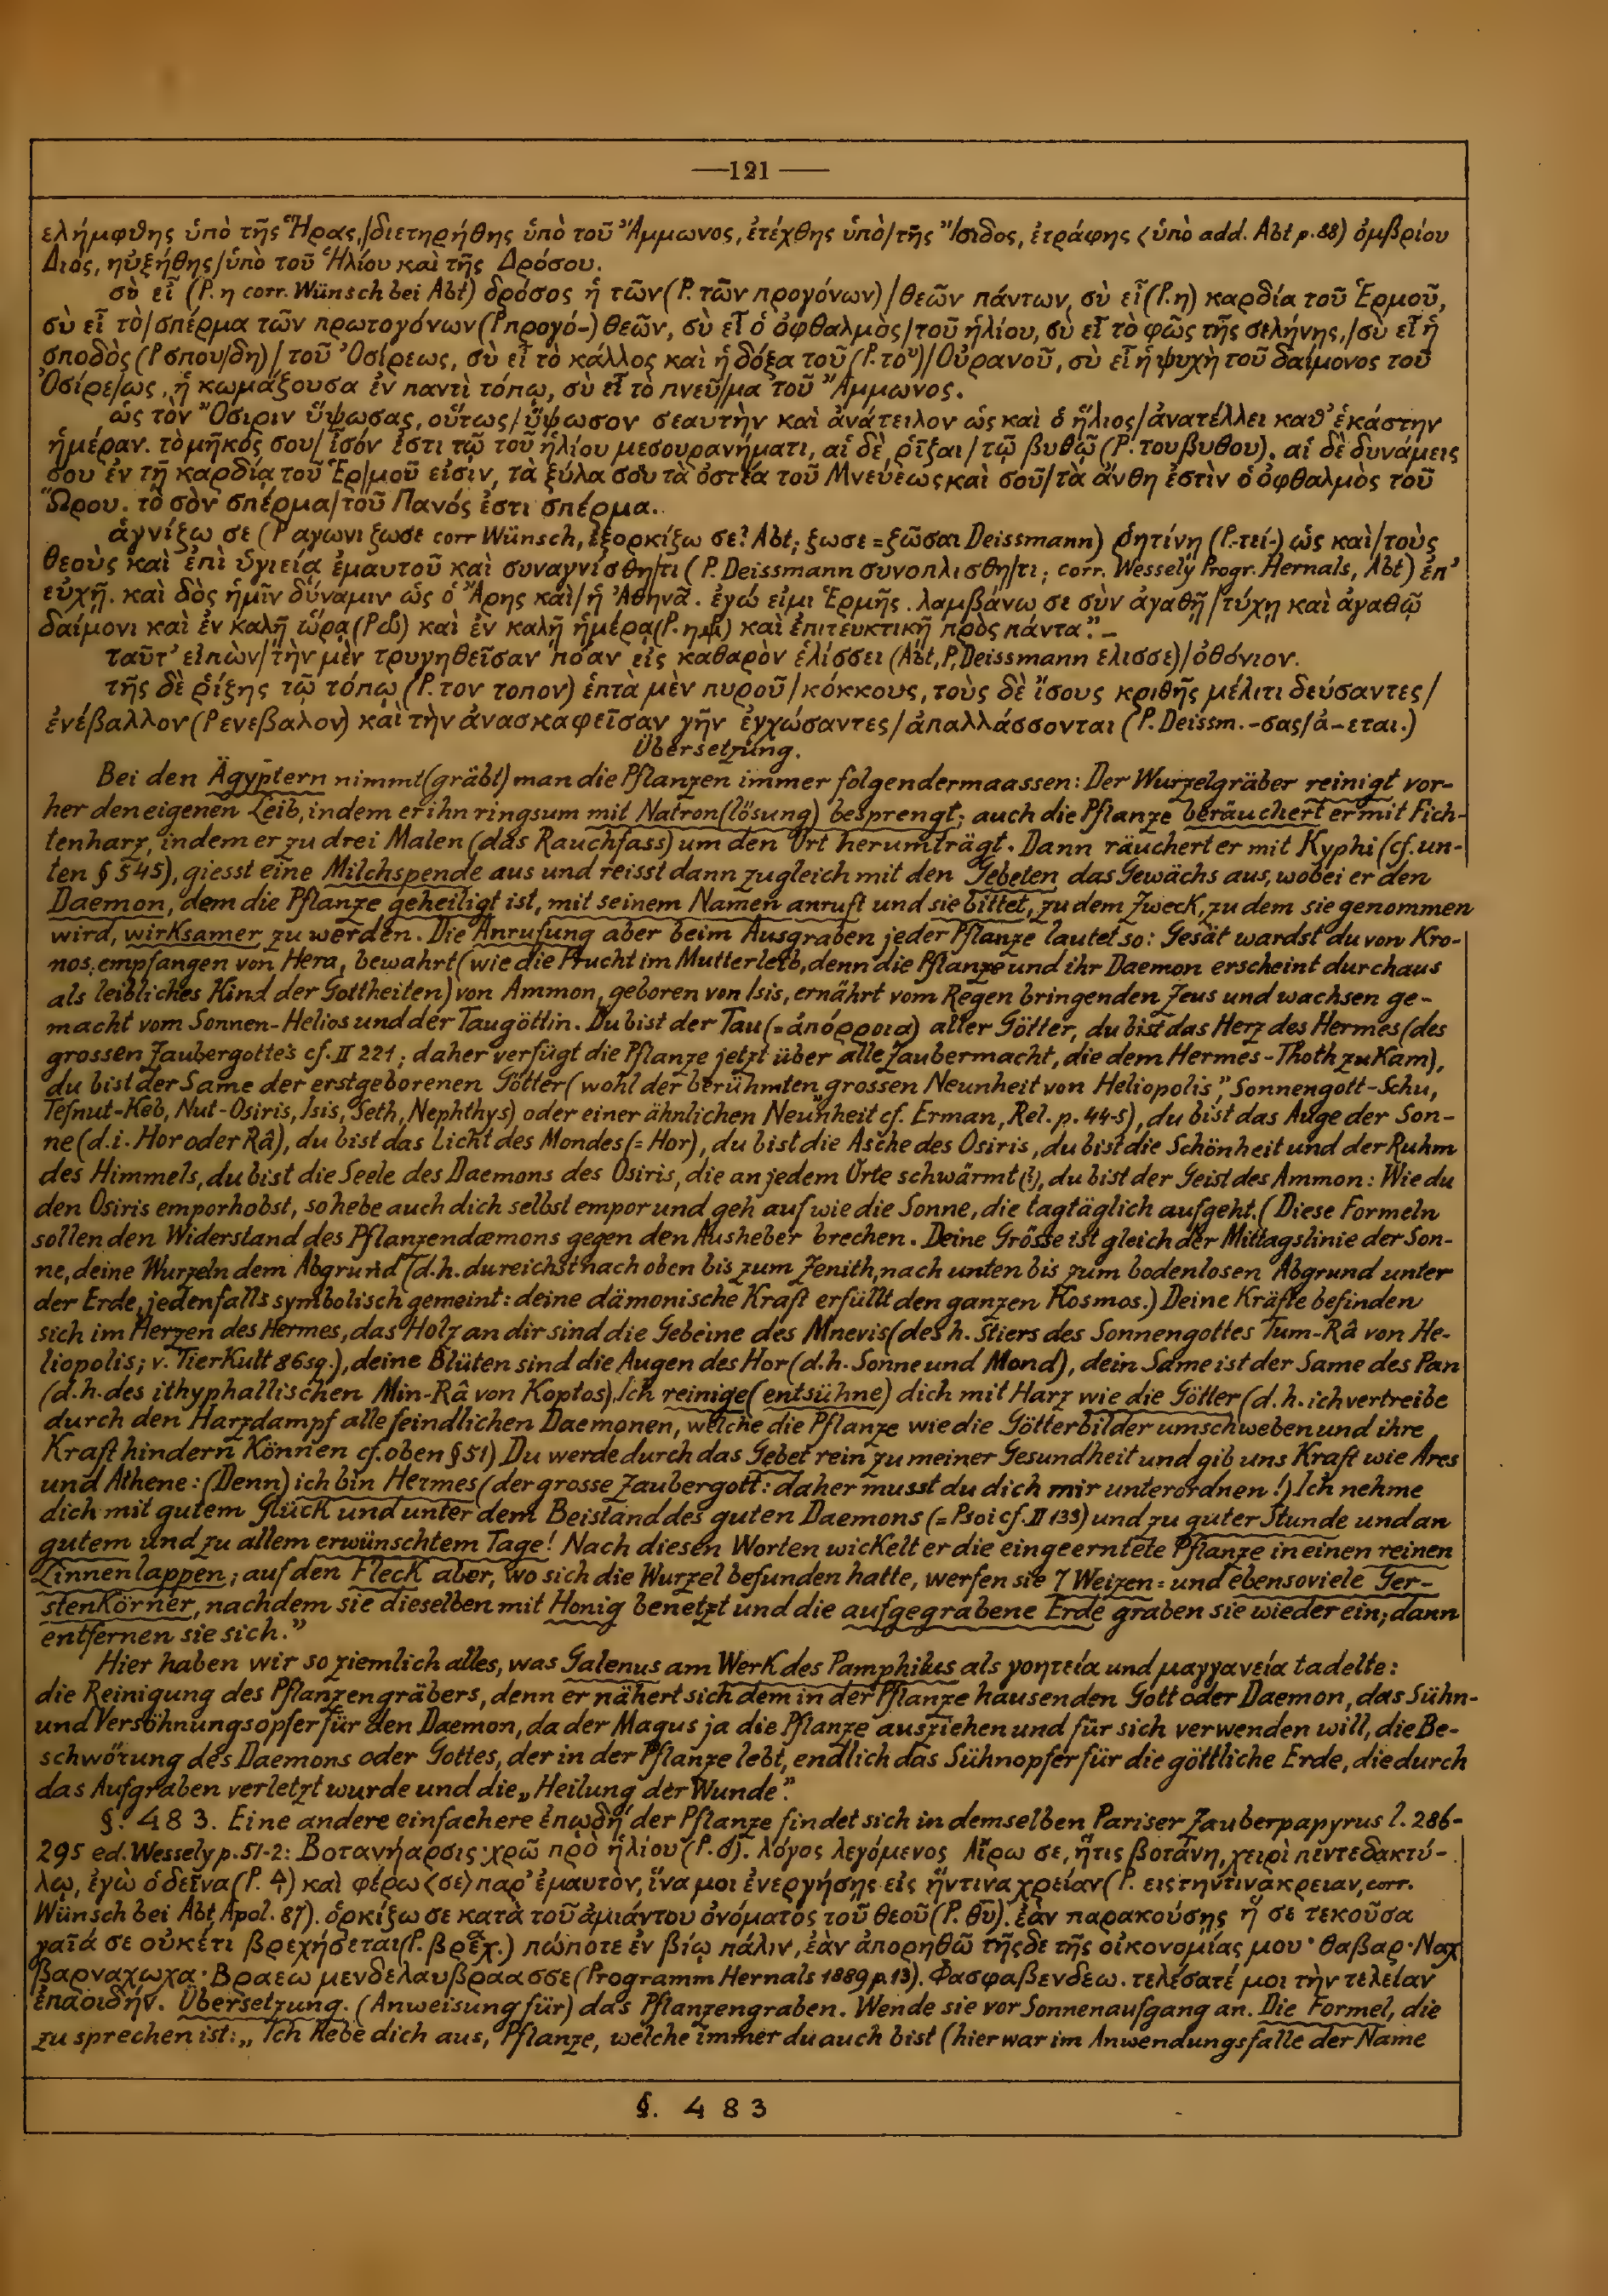 —121—
ελήμφθης ὑπὸ τῆς Ἥρας,/διετηρήθης ὑπὸ τοῦ Ἄμμωνος, ἐτέχθης ὑπὸ/τῆς Ἴσιδος, ἐτράφης <ὑπὸ add. Abt p. 88) ὀμβρίου
Διός, ηὐξήθης/ὑπὸ τοῦ Ἡλίου καὶ τῆς Δρόσου.
σὺ εἶ (P. η corr. Wünsch bei Abt) δρόσος ἡ τῶν (P. τῶν προγόνων)/θεῶν πάντων, σὺ εἶ (P. η) καρδία τοῦ Ἑρμοῦ,
σὺ εἶ τὸ/σπέρμα τῶν πρωτογόνων (P προγό-) θεῶν, σὺ εἶ ὁ ὀφθαλμὸς/τοῦ ἡλίου, σὺ εἶ τὸ φῶς τῆς σελήνης,/σὺ εἶ ἡ
σποδὸς (P σπου/δη)/τοῦ Ὀσίρεως, σὺ εἶ τὸ κάλλος καὶ ἡ δόξα τοῦ (P. τοʸ)/Οὐρανοῦ, σὺ εἶ ἡ ψυχὴ τοῦ δαίμονος τοῦ
Ὀσίρε/ως, ἡ κωμάζουσα ἐν παντὶ τόπῳ, σὺ εἶ τὸ πνεῦ/μα τοῦ Ἄμμωνος.
ὡς τὸν Ὄσιριν ὕψωσας, οὕτως/ὕψωσον σεαυτὴν καὶ ἀνάτειλον ὡς καὶ ὁ ἥλιος/ἀνατέλλει καθ’ ἑκάστην
ἡμέραν. τὸ μῆκός σου/ἶσόν ἐστι τῷ τοῦ ἡλίου μεσουρανήματι, αἱ δὲ ῥίζαι/τῷ βυθῷ (P. του βυθου). αἱ δὲ δυνάμεις
σου ἐν τῇ καρδίᾳ τοῦ Ἑρ/μοῦ εἰσιν, τὰ ξύλα σου τὰ ὀστέα τοῦ Μνεύεως καὶ σοῦ/τὰ ἄνθη ἐστὶν ὁ ὀφθαλμὸς τοῦ
Ὥρου. τὸ σὸν σπέρμα/τοῦ Πανός ἐστι σπέρμα.
ἁγνίζω σε (P αγωνι ζωσε corr Wünsch, ἐξορκίζω σε? Abt; ζωσε = ζῶσαι Deissmann) ῥητίνῃ (P.-τεί-) ὡς καὶ/τοὺς
θεοὺς καὶ ἐπὶ ὑγιείᾳ ἐμαυτοῦ καὶ συναγνίσθη/τι (P. Deissmann συνοπλισθη/τι; corr. Wessely Progr. Hernals, Abt) ἐπ’
εὐχῇ. καὶ δὸς ἡμῖν δύναμιν ὡς ὁ Ἄρης καὶ/ἡ Ἀθηνᾶ. ἐγώ εἰμι Ἑρμῆς. λαμβάνω σε σὺν ἀγαθῇ/τύχῃ καὶ ἀγαθῷ
δαίμονι καὶ ἐν καλῇ ὥρᾳ καὶ ἐν καλῇ ἡμέρᾳ καὶ ἐπιτευκτικῇ πρὸς πάντα.” —
ταῦτ’ εἰπὼν/τὴν μὲν τρυγηθεῖσαν πόαν εἰς καθαρὸν ἑλίσσει (Abt, P, Deissmann ελισσε)/ὀθόνιον.
τῆς δὲ ῥίζης τῷ τόπῳ (P. τον τοπον) ἑπτὰ μὲν πυροῦ/κόκκους, τοὺς δὲ ἴσους κριθῆς μέλιτι δεύσαντες/
ἐνέβαλλον (P ενεβαλον) καὶ τὴν ἀνασκαφεῖσαν γῆν ἐγχώσαντες/ἀπαλλάσσονται (P. Deissm. -σας/ἀ-εται.)
Übersetzung.
Bei den Ägyptern nimmt (gräbt) man die Pflanzen immer folgendermaassen: Der Wurzelgräber reinigt vor-
her den eigenen Leib, indem er ihn ringsum mit Natron(lösung) besprengt; auch die Pflanze beräuchert er mit Fich-
tenharz, indem er zu drei Malen (das Rauchfass) um den Ort herumträgt. Dann räuchert er mit Kyphi (cf. un-
ten § 545), giesst eine Milchspende aus und reisst dann zugleich mit den Gebeten das Gewächs aus, wobei er den
Daemon, dem die Pflanze geheiligt ist, mit seinem Namen anruft und sie bittet, zu dem Zweck, zu dem sie genommen
wird, wirksamer zu werden. Die Anrufung aber beim Ausgraben jeder Pflanze lautet so: Gesät wardst du von Kro-
nos, empfangen von Hera, bewahrt (wie die Frucht im Mutterleib, denn die Pflanze und ihr Daemon erscheint durchaus
als leibliches Kind der Gottheiten) von Ammon, geboren von Isis, ernährt vom Regen bringenden Zeus und wachsen ge-
macht vom Sonnen-Helios und der Taugöttin. Du bist der Tau (= ἀπόρροια) aller Götter, du bist das Herz des Hermes (des
grossen Zaubergottes cf. II 221; daher verfügt die Pflanze jetzt über alle Zaubermacht, die dem Hermes-Thoth zukam),
du bist der Same der erstgeborenen Götter (wohl der berühmten „grossen Neunheit von Heliopolis”, Sonnengott-Schu,
Tefnut-Keb, Nut-Osiris, Isis, Seth, Nephthys) oder einer ähnlichen Neunheit cf. Erman, Rel. p. 44-5), du bist das Auge der Son-
ne (d.i. Hor oder Râ), du bist das Licht des Mondes (= Hor), du bist die Asche des Osiris, du bist die Schönheit und der Ruhm
des Himmels, du bist die Seele des Daemons des Osiris, die an jedem Orte schwärmt (?), du bist der Geist des Ammon: Wie du
den Osiris emporhobst, so hebe auch dich selbst empor und geh auf wie die Sonne, die tagtäglich aufgeht. (Diese Formeln
sollen den Widerstand des Pflanzendæmons gegen den Ausheber brechen. Deine Grösse ist gleich der Mittagslinie der Son-
ne, deine Wurzeln dem Abgrund (d.h. du reichst nach oben bis zum Zenith, nach unten bis zum bodenlosen Abgrund unter
der Erde, jedenfalls symbolisch gemeint: deine dämonische Kraft erfüllt den ganzen Kosmos.) Deine Kräfte befinden
sich im Herzen des Hermes, das Holz an dir sind die Gebeine des Mnevis (des h. Stiers des Sonnengottes Tum-Râ von He-
liopolis; v. Tierkult 86 sq.), deine Blüten sind die Augen des Hor (d.h. Sonne und Mond), dein Same ist der Same des Pan
(d.h. des ithyphallischen Min-Râ von Koptos). Ich reinige (entsühne) dich mit Harz wie die Götter (d.h. ich vertreibe
durch den Harzdampf alle feindlichen Daemonen, welche die Pflanze wie die Götterbilder umschweben und ihre
Kraft hindern können cf. oben § 51) Du werde durch das Gebet rein zu meiner Gesundheit und gib uns Kraft wie Ares
und Athene: (Denn) ich bin Hermes (der grosse Zaubergott: daher musst du dich mir unterordnen!) Ich nehme
dich mit gutem Glück und unter dem Beistand des guten Daemons (= Psoi cf. II 133) und zu guter Stunde und an
gutem und zu allem erwünschtem Tage! Nach diesen Worten wickelt er die eingeerntete Pflanze in einen reinen
Linnenlappen; auf den Fleck aber, wo sich die Wurzel befunden hatte, werfen sie 7 Weizen= und ebensoviele Ger-
stenkörner, nachdem sie dieselben mit Honig benetzt und die aufgegrabene Erde graben sie wieder ein; dann
entfernen sie sich.”
Hier haben wir so ziemlich alles, was Galenus am Werk des Pamphilus als γοητεία und μαγγανεία tadelte:
die Reinigung des Pflanzengräbers, denn er nähert sich dem in der Pflanze hausenden Gott oder Daemon, das Sühn-
und Versöhnungsopfer für den Daemon, da der Magus ja die Pflanze ausziehen und für sich verwenden will, die Be-
schwörung des Daemons oder Gottes, der in der Pflanze lebt, endlich das Sühnopfer für die göttliche Erde, die durch
das Aufgraben verletzt wurde und die „Heilung der Wunde”.
§. 483. Eine andere einfachere ἐπῳδή der Pflanze findet sich in demselben Pariser Zauberpapyrus l. 286-
295 ed. Wessely p. 51-2: Βοτανήαρσις· χρῶ πρὸ ἡλίου. λόγος λεγόμενος Αἴρω σε, ἥτις βοτάνη, χειρὶ πεντεδακτύ-
λῳ, ἐγὼ ὁ δεῖνα καὶ φέρω <σε> παρ’ ἐμαυτὸν, ἵνα μοι ἐνεργήσῃς εἰς ἥντινα χρείαν (P. εις την τινα κρειαν, corr.
Wünsch bei Abt, Apol. 87). ὁρκίζω σε κατὰ τοῦ ἀμιάντου ὀνόματος τοῦ θεοῦ (P. θῡ). ἐὰν παρακούσῃς ἥ σε τεκοῦσα
γαῖά σε οὐκέτι βρεχήσεται πώποτε ἐν βίῳ πάλιν, ἐὰν ἀπορηθῶ τῆσδε τῆς οἰκονομίας μου· θαβαρ· Ναχ
βαρναχωχα· Βραεω μενδελαυβραασσε (Programm Hernals 1889 p. 13). Φασφαβενδεω. τελέσατέ μοι τὴν τελείαν
ἐπαοιδήν. Übersetzung. (Anweisung für) das Pflanzengraben. Wende sie vor Sonnenaufgang an. Die Formel, die
zu sprechen ist: „Ich hebe dich aus, Pflanze, welche immer du auch bist (hier war im Anwendungsfalle der Name
§. 483